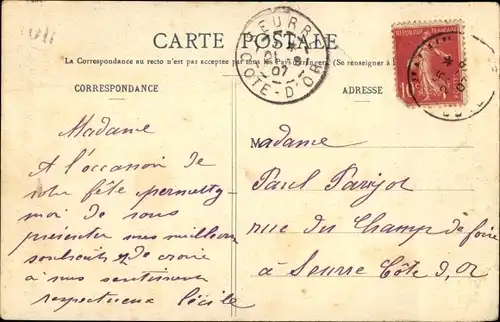 CARTE POSTALE
La Correspondance au recto n'est pas acceptée par tous les Pays étrangers. (Se renseigner à
CORRESPONDANCE
ADRESSE
SEURRE
07
COTE-D'OR
10
Madame
A l'occasion de
votre fête permettez
moi de vous
présenter mes meilleurs
souhaits & de croire
à mes sentiments
respectueux Cécile
Madame
Paul Parizot
rue du Champ de foire
à Seurre Côte d'Or